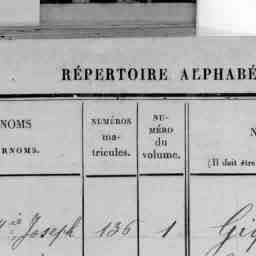 RÉPERTOIRE ALPHABÉ
NOMS
RNOMS.
NUMÉROS
ma-
tricules.
NU-
MÉRO
du
volume.
N
(Il doit être
Joseph 136 1 Gig